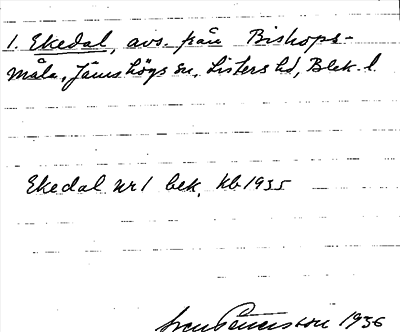 1. Ekedal, avs. från Bishops-
måla, Jämshögs sn, Listers hd, Blek. l.
Ekedal nr 1 bek. kb 1935
1936